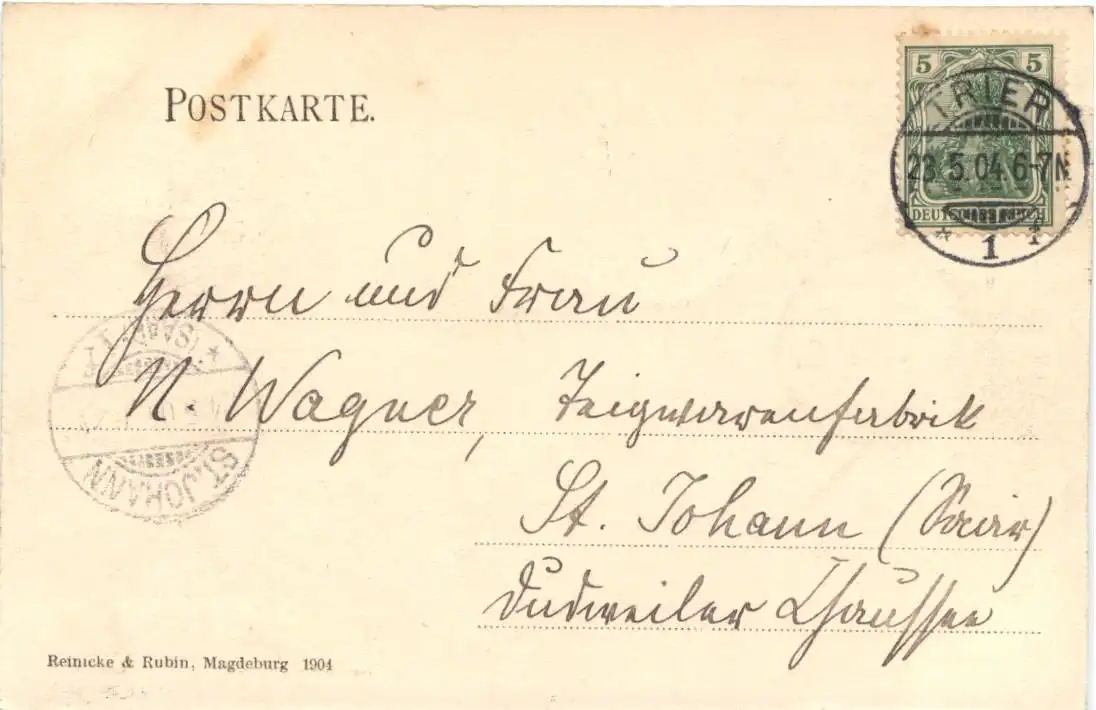 POSTKARTE.
5 5
TRIER
23.5.04.6-7N
* 1 f
DEUTSCHES REICH
Herrn und Frau
N. Wagner, Teigwarenfabrik
St. Johann (Saar)
Dudweiler Chaussee
(SAAR)
ST. JOHANN
Reinicke & Rubin, Magdeburg 1904